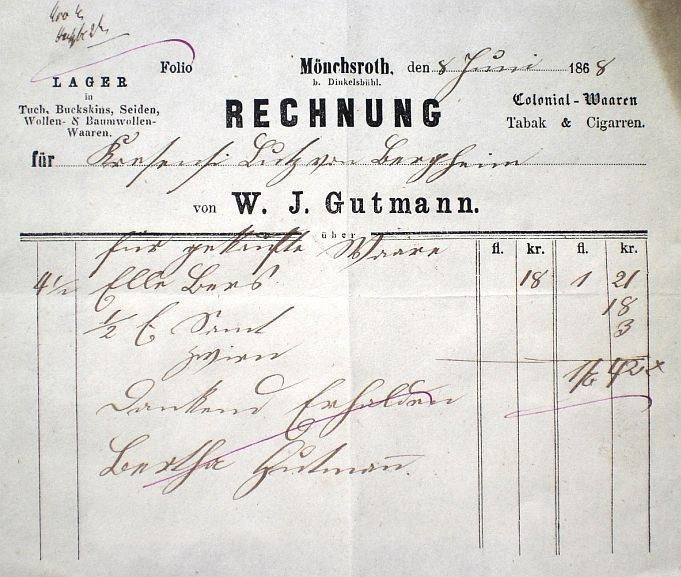 Folio
Mönchsroth, den 8 Juni 1868
b. Dinkelsbühl.
LAGER
in
Tuch, Buckskins, Seiden,
Wollen- & Baumwollen-
Waaren.
RECHNUNG
Colonial-Waaren
Tabak & Cigarren.
für Kresensi Lutz von Bergheim
von W. J. Gutmann.
über
fl. kr. fl. kr.
für gekaufte Waare
4 1/2 Elle Bers 18 1 21
1/2 E Samt 18
Zwirn 3
1 f 42 x
Dankend Erhalden
Bertha Gutmann.